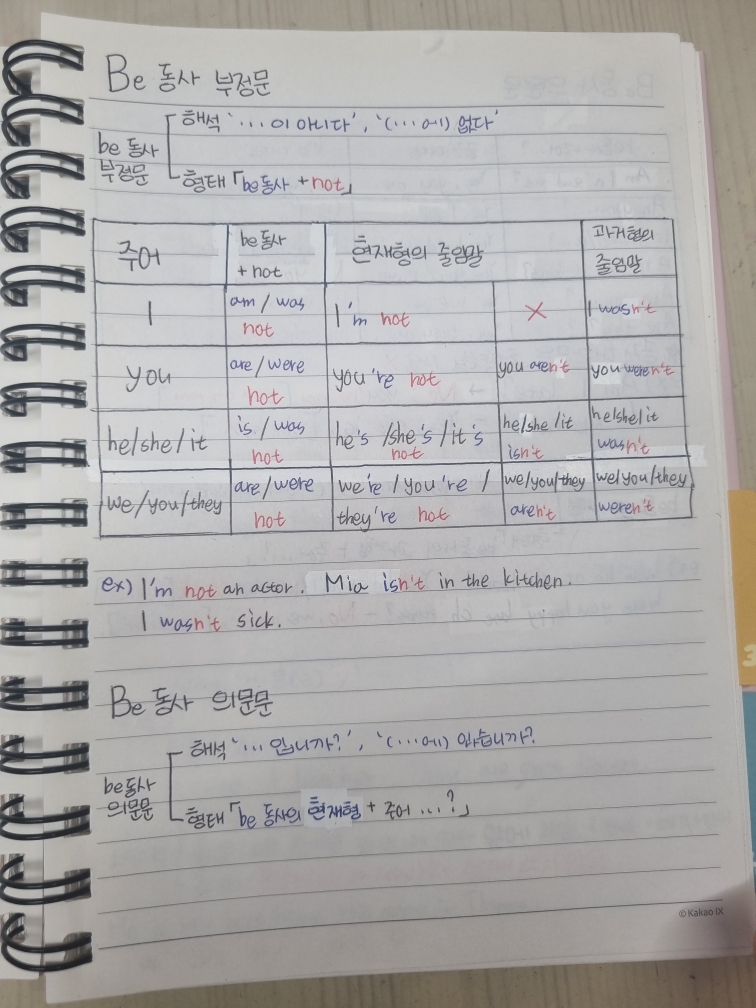 Be 동사 부정문
해석 '... 이 아니다', '(...에) 없다'
be 동사
부정문
형태 「be동사 + not」
주어
be동사
+ not
현재형의 줄임말
과거형의
줄임말
I
am / was
not
I'm not
X
I wasn't
you
are / were
not
you're not
you aren't
you weren't
he/she/it
is / was
not
he's /she's /it's
not
he/she/it
isn't
he/she/it
wasn't
we/you/they
are/were
not
we're / you're /
they're not
we/you/they
aren't
we/you/they
weren't
ex) I'm not an actor. Mia isn't in the kitchen.
I wasn't sick.
Be 동사 의문문
해석 '... 입니까?', '(...에) 있습니까?
be동사
의문문
형태 「be 동사의 현재형 + 주어 ...?」
© Kakao IX